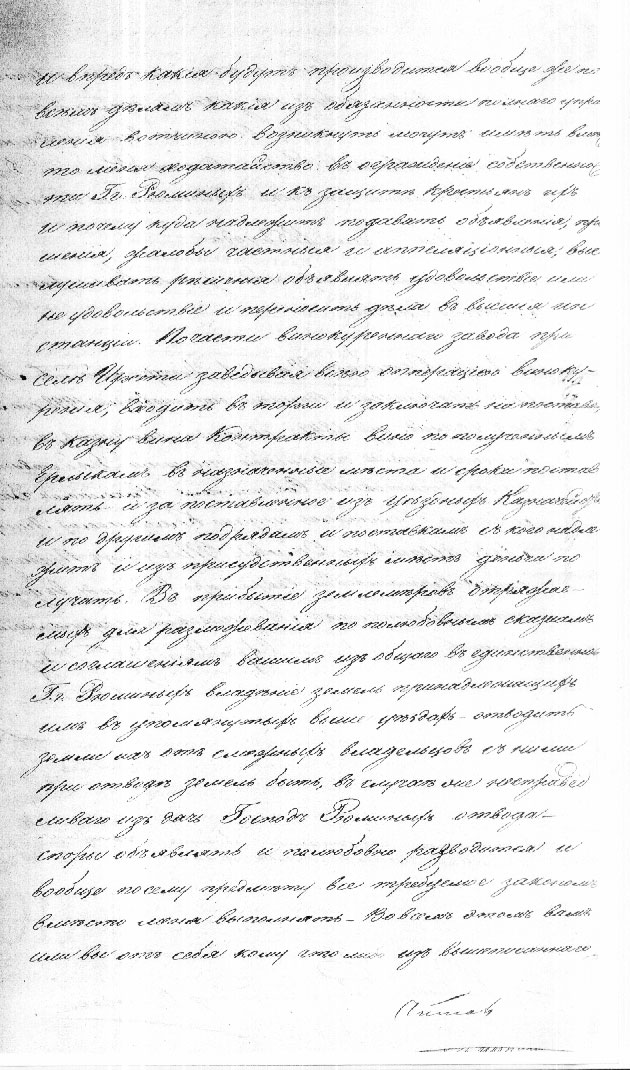 и впредь какія будутъ производится вообще же по
всемъ деламъ какія изъ обязанности полнаго упра
вленія вотчиною возникнуть могутъ иметь вмес
то меня ходатайство въ огражденіе собственнос
ти Гг. Рюминыхъ и къ защите крестьянъ ихъ
и почему куда надлежитъ подавать объявленія, про
шенія, жалобы частныя и аппеляціонныя, выс
лушивать решенія объявлять удовольствіе или
не удовольствіе и переносить дела въ высшія ин
станціи. Почасти винокуреннаго завода при
селе заведывая всею операціею виноку-
ренія, входить въ торги и заключать на поставку
въ казну вина контракты вино по полученнымъ
ерлыкамъ въ назначенныя места и сроки постав
лять и за поставленное изъ уездныхъ Казначействъ
и по другимъ подрядамъ и поставкамъ съ кого надле
житъ и изъ присудственныхъ местъ деньги по
лучать. Въ прибытіе землемеровъ отряжае-
мыхъ для размежеванія по полюбовнымъ сказкамъ
и соглашеніямъ вашимъ изъ общаго въ единственное
Гг. Рюминыхъ владеніе земель принадлежащихъ
имъ въ упомянутыхъ выше уездахъ отводить
земли ихъ отъ смежныхъ владельцовъ съ ними
при отводе земель быть, въ случае же несправед
ливаго изъ дачь Господъ Рюминыхъ отвода
споры объявлять и полюбовно разводится и
вообще посему предмету все требуемое закономъ
вместо меня выполнять - Во всемъ этомъ вамъ
или вы отъ себя кому что либо изъ вышеписаннаго